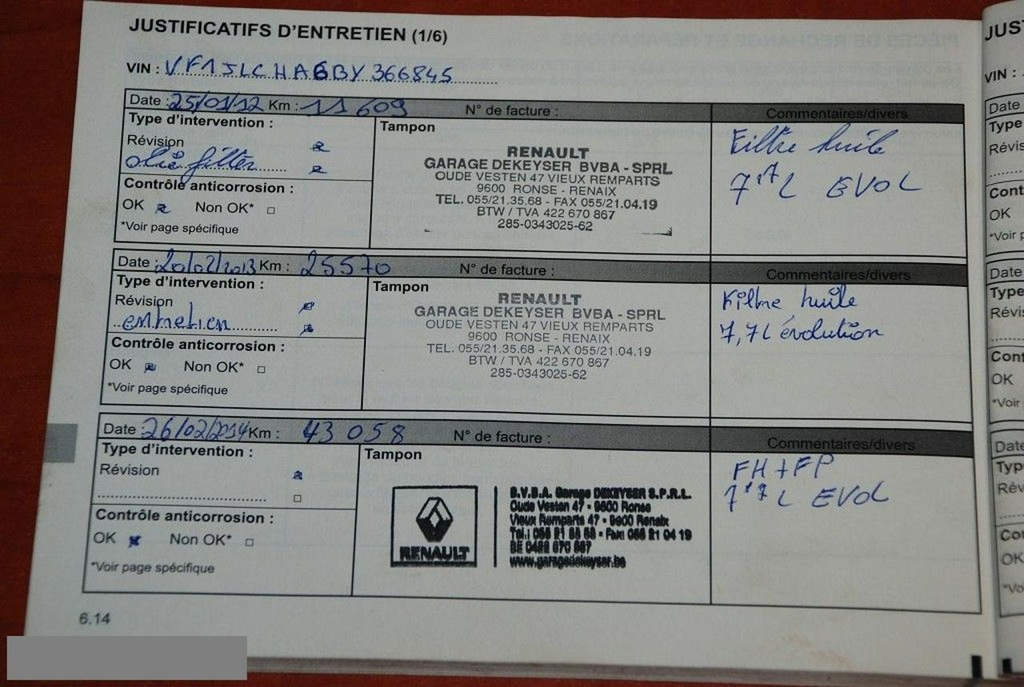 JUSTIFICATIFS D'ENTRETIEN (1/6)
VIN : VF1JLCHA6BY366845
Date : 25/01/12 Km : 11 609 N° de facture : Commentaires/divers
Type d'intervention :
Révision
olie filter
Contrôle anticorrosion :
OK Non OK*
*Voir page spécifique
Tampon
RENAULT
GARAGE DEKEYSER BVBA - SPRL
OUDE VESTEN 47 VIEUX REMPARTS
9600 RONSE - RENAIX
TEL. 055/21.35.68 - FAX 055/21.04.19
BTW / TVA 422 670 867
285-0343025-62
Filtre huile
7,7 L EVOL
Date : 20/02/2013 Km : 25570 N° de facture : Commentaires/divers
Type d'intervention :
Révision
entretien
Contrôle anticorrosion :
OK Non OK*
*Voir page spécifique
Tampon
RENAULT
GARAGE DEKEYSER BVBA - SPRL
OUDE VESTEN 47 VIEUX REMPARTS
9600 RONSE - RENAIX
TEL. 055/21.35.68 - FAX 055/21.04.19
BTW / TVA 422 670 867
285-0343025-62
Filtre huile
7,7L évolution
Date : 26/02/2014 Km : 43 058 N° de facture : Commentaires/divers
Type d'intervention :
Révision
Contrôle anticorrosion :
OK Non OK*
*Voir page spécifique
Tampon
RENAULT
B.V.B.A. Garage DEKEYSER S.P.R.L.
Oude Vesten 47 - 9600 Ronse
Vieux Remparts 47 - 9600 Renaix
Tel.: 055 21 35 68 - Fax: 055 21 04 19
BE 0422 670 867
www.garagedekeyser.be
FH + FP
7,7 L EVOL
6.14
JUS
VIN :
Date
Type
Révis
Cont
OK
*Voir p
Date
Type
Révis
Cont
OK
*Voir
Date
Typ
Rév
Co
OK
*Vo